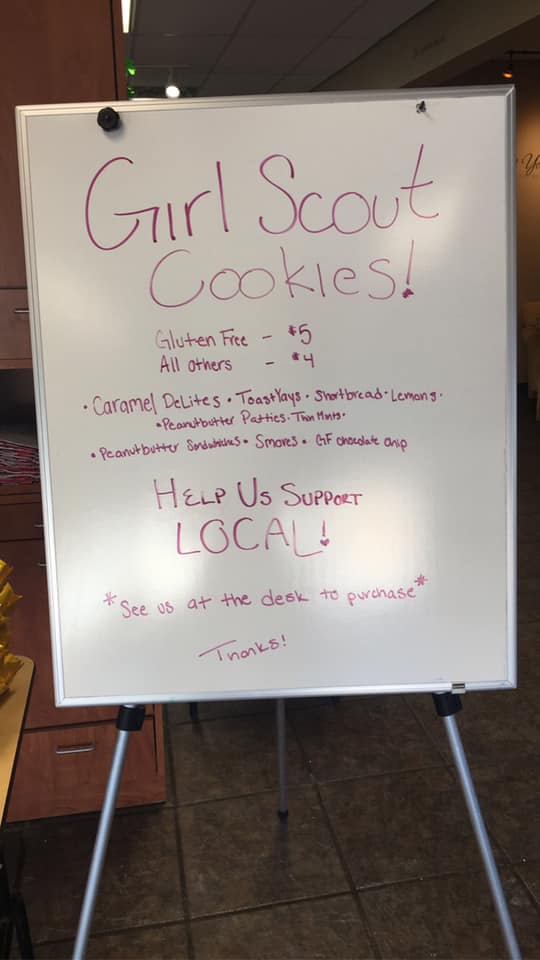 Girl Scout
Cookies!
Gluten Free - $5
All others - $4
• Caramel DeLites • ToastYays • Shortbread • Lemons •
• Peanutbutter Patties • Thin Mints •
• Peanutbutter Sandwiches • Smores • GF chocolate chip
HELP US SUPPORT
LOCAL!
*See us at the desk to purchase*
Thanks!